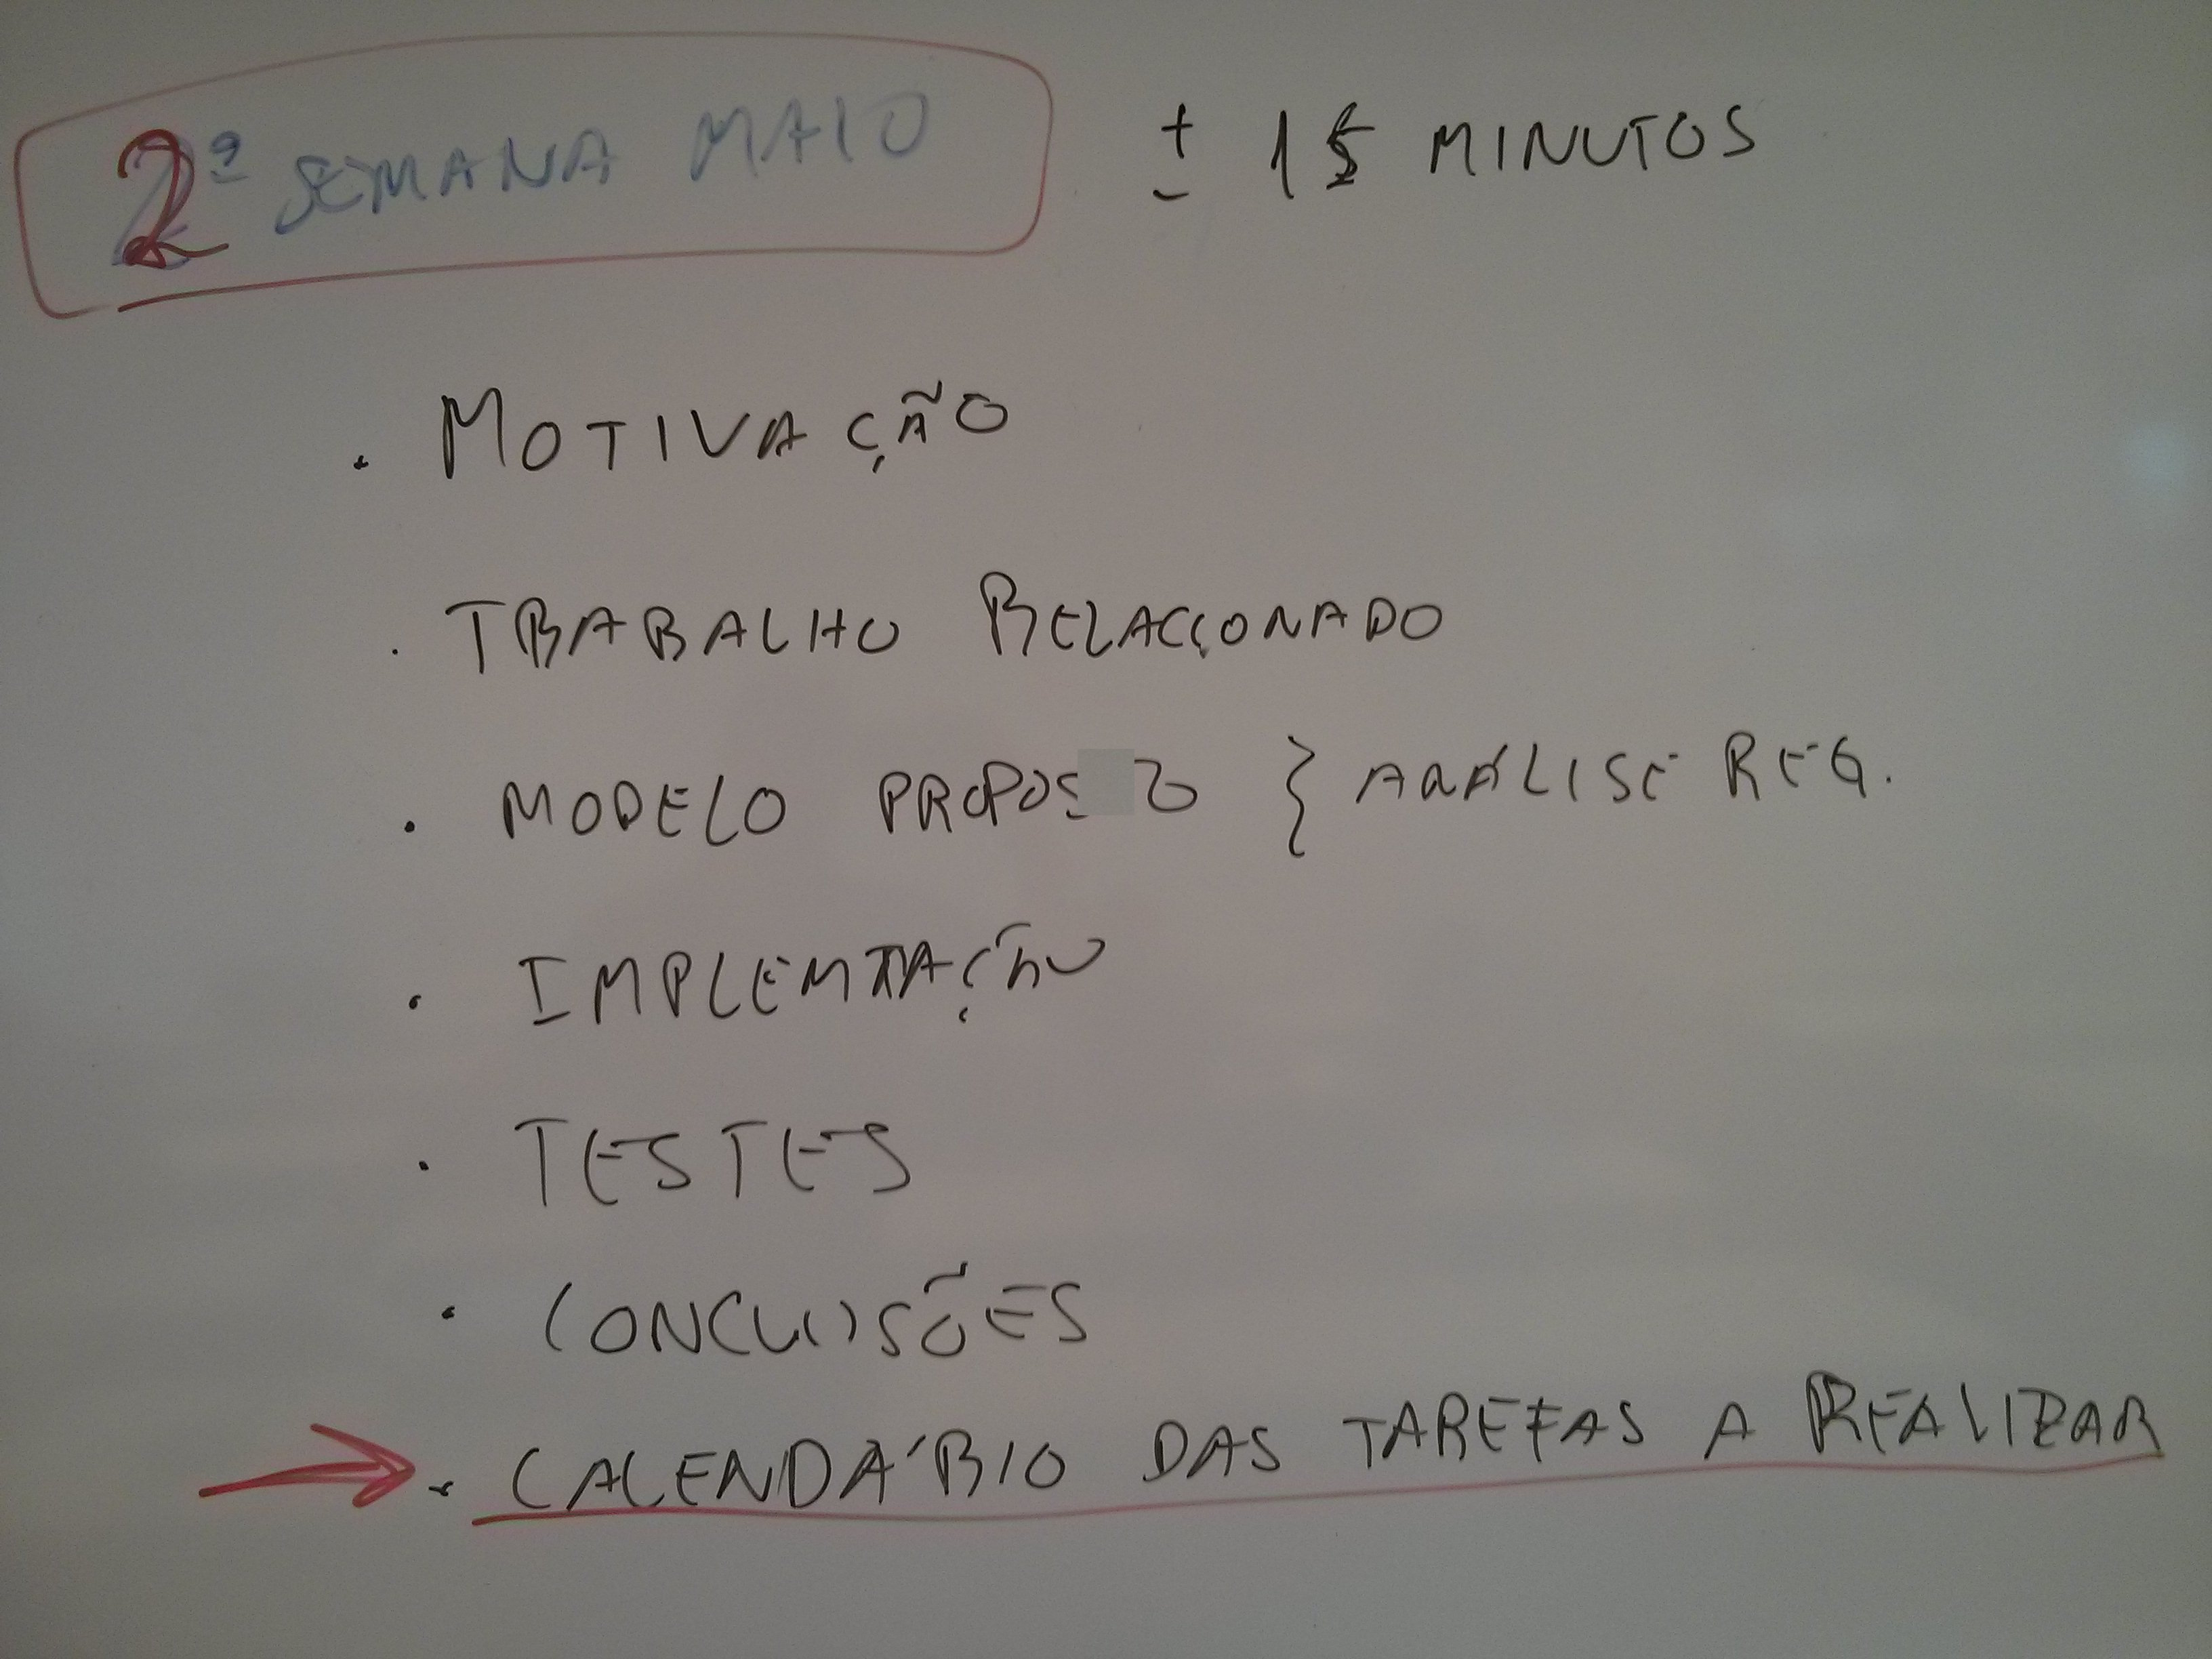 2ª SEMANA MAIO
± 15 MINUTOS
. MOTIVAÇÃO
. TRABALHO RELACIONADO
. MODELO } ANÁLISE REQ.
. IMPLEMTAÇÃO
. TESTES
. CONCLUSÕES
→ . CALENDÁRIO DAS TAREFAS A REALIZAR